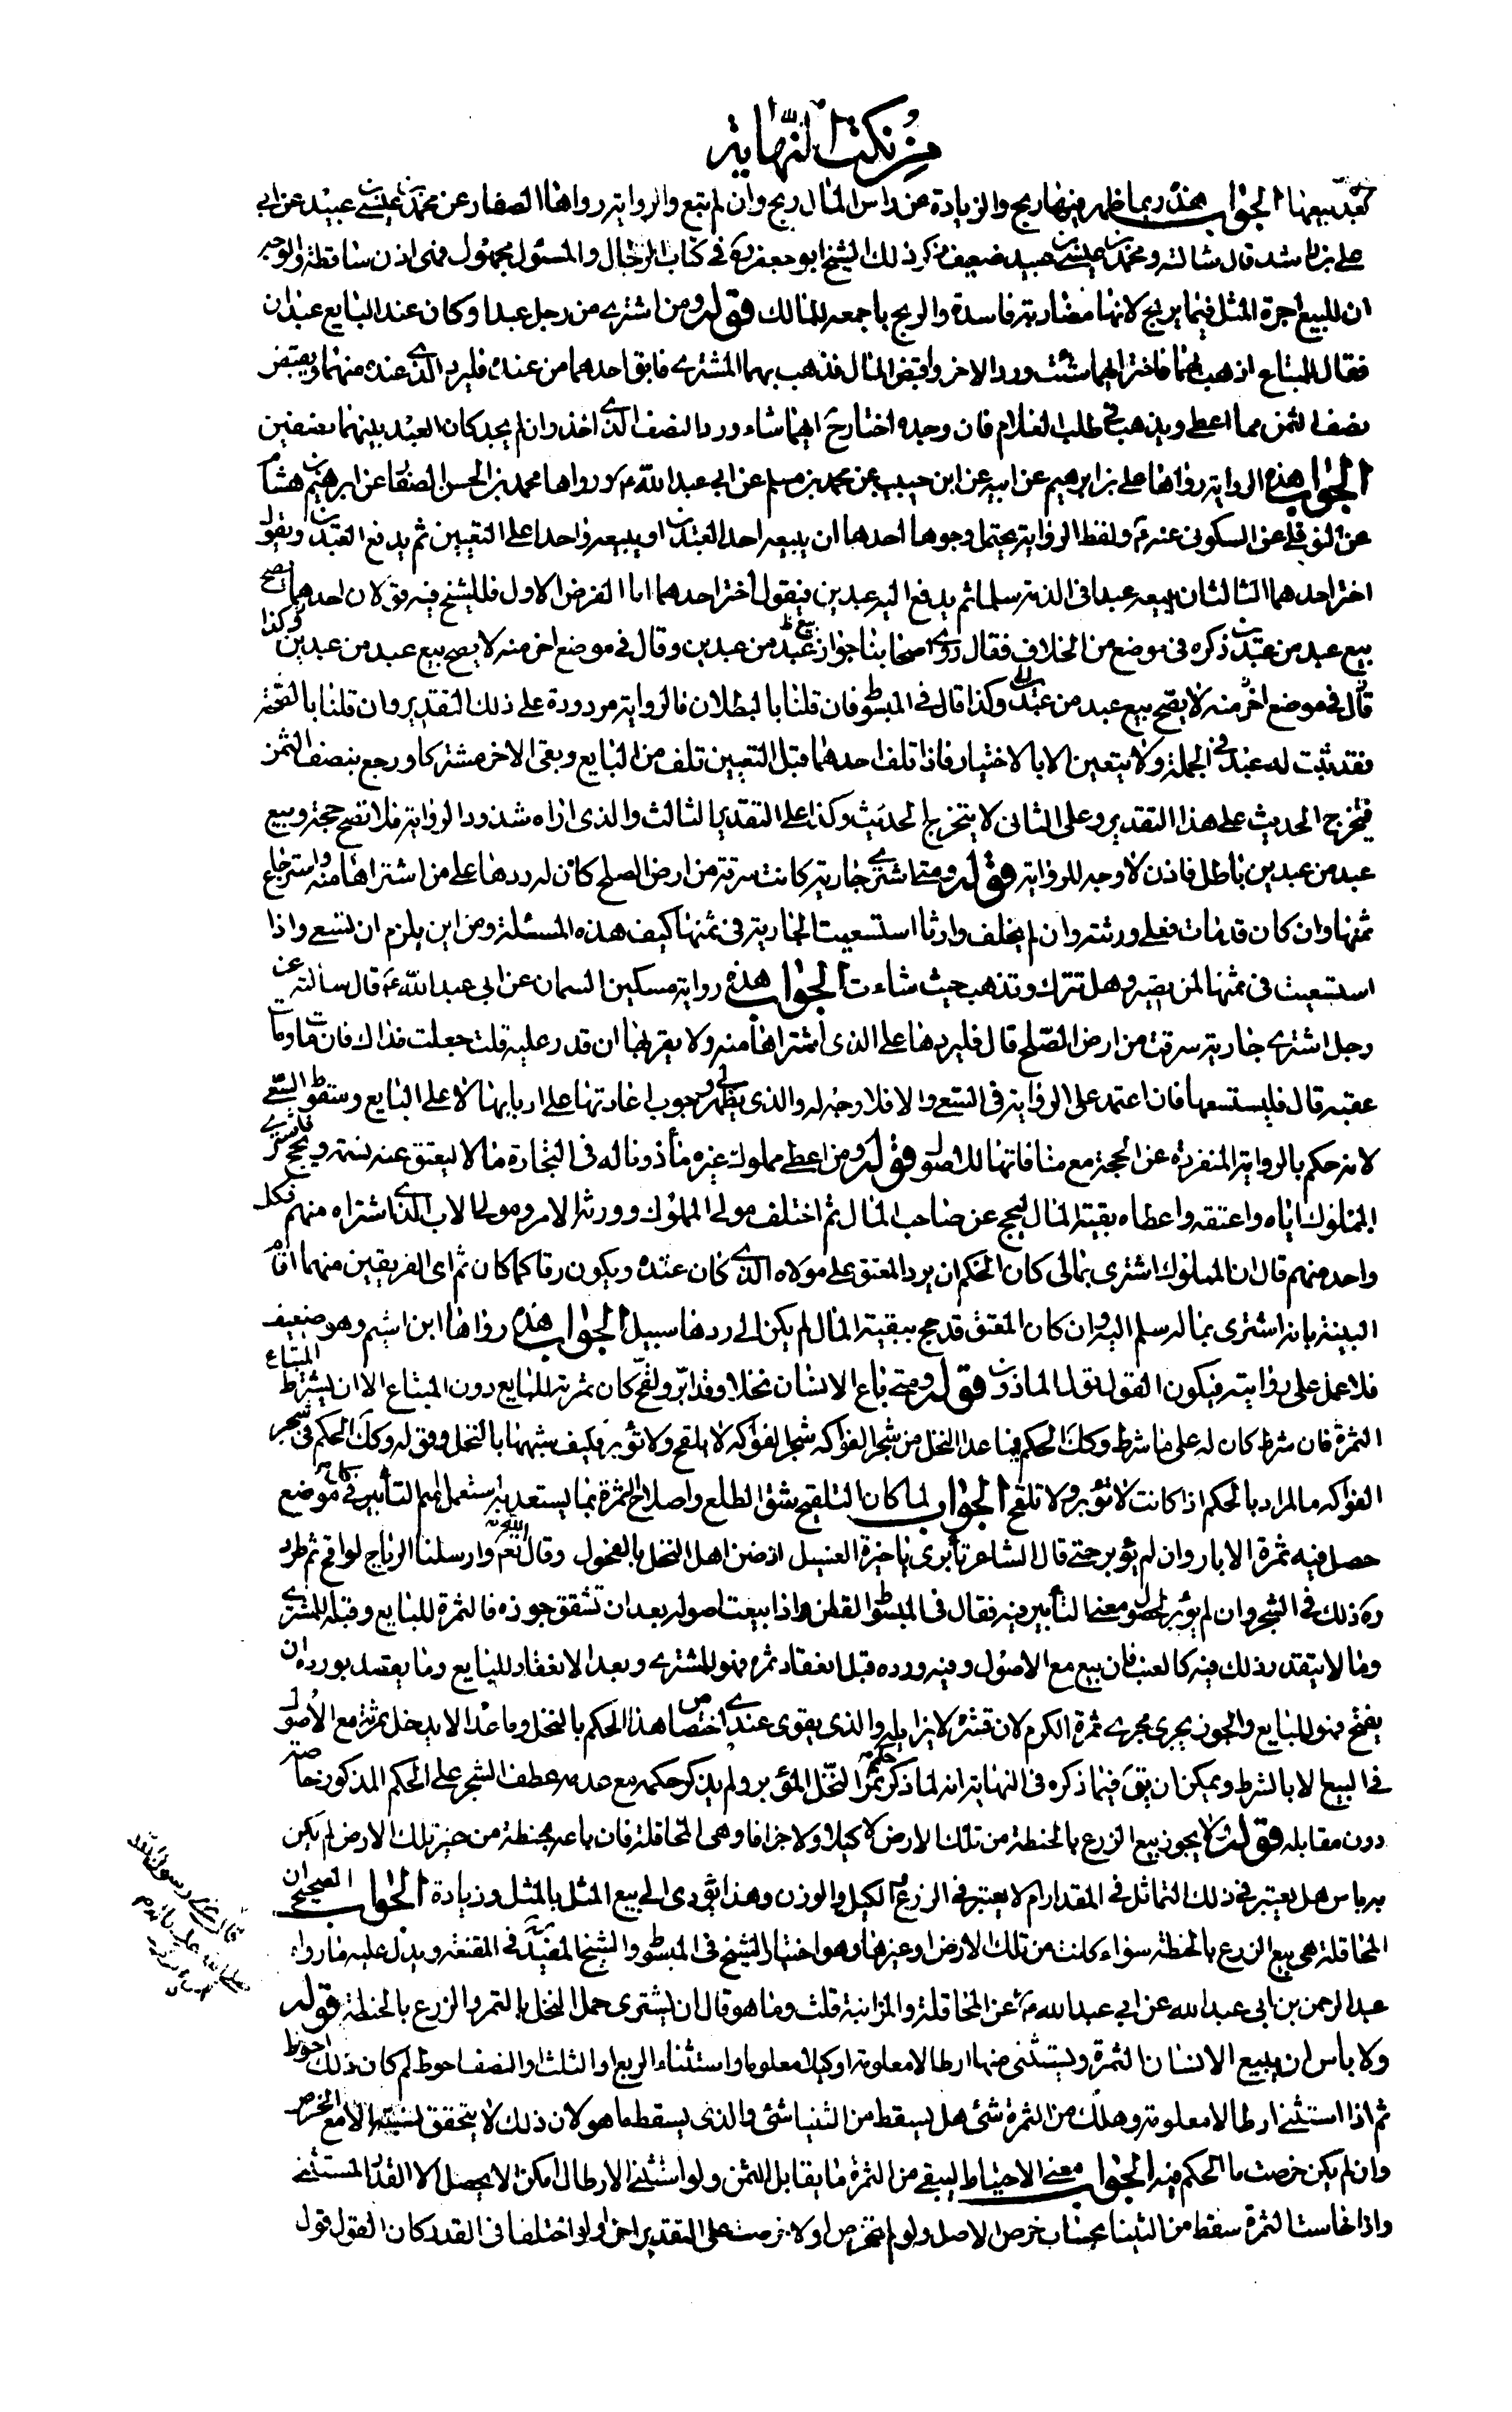 من نكت النهاية
بعد بيعها الجواب هذه ربما ظهر فيها ربح والزيادة عن راس المال ربح وان لم تبع والرواية رواها الصفار عن محمد بن عيسى بن عبيد عن ابي
علي بن راشد قال سالته ومحمد بن عيسى بن عبيد ضعيف ذكر ذلك الشيخ ابو جعفر ره في كتاب الرجال والمسئول مجهول فهي اذن ساقطة والوجه
ان للبيع اجرة المثل فيما يربح لانها مضاربة فاسدة والربح باجمعه للمالك قوله ومن اشترى من رجل عبدا وكان عند البايع عبدان
فقال للمبتاع اذهب بهما فاختر ايهما شئت ورد الاخر واقبض المال فذهب بهما المشتري فابق احدهما من عنده فليرد الذي عنده منهما ويقبض
نصف الثمن مما اعطى ويذهب في طلب الغلام فان وجده اختار ح ايهما شاء ورد النصف الذي اخذ وان لم يجد كان العبد بينهما نصفين
الجواب هذه الرواية رواها علي بن ابرهيم عن ابيه عن ابن حبيب عن محمد بن مسلم عن ابي عبد الله ع ورواها محمد بن الحسن الصفار عن ابرهيم بن هشام
عن النوفلي عن السكوني عنه ع ولفظ الرواية يحتمل وجوها احدها ان يبيعه احد العبدين او يبيعه واحدا على التعيين ثم يدفع العبدين ويقول
اختر احدهما الثالث ان يبيعه عبدا في الذمة سلما ثم يدفع اليه عبدين فيقول اختر احدهما اما الفرض الاول فللشيخ فيه قولان احدهما يصح
بيع عبد من عبدين ذكره في موضع من الخلاف فقال روى اصحابنا جواز بيع عبد من عبدين وقال في موضع اخر منه لا يصح بيع عبد من عبدين وكذا
قال في موضع اخر منه لا يصح بيع عبد من عبدين وكذا قال في المبسوط فان قلنا بالبطلان فالرواية مردودة على ذلك التقدير وان قلنا بالصحة
فقد ثبت له عبد في الجملة ولا يتعين الا بالاختيار فاذا تلف احدهما قبل التعيين تلف من البايع وبقى الاخر مشتركا ورجع بنصف الثمن
فيخرج الحديث على هذا التقدير وعلى الثاني لا يتخرج الحديث وكذا على التقدير الثالث والذى اراه شذوذ الرواية فلا تصح حجة وبيع
عبد من عبدين باطل فاذن لا وجه للرواية قوله ومتى اشترى جارية كانت سرقت من ارض الصلح كان له ردها على من اشتراها منه واسترجاع
ثمنها وان كان قد مات فعلى ورثته وان لم يخلف وارثا استسعيت الجارية في ثمنها كيف هذه المسئلة ومن اين يلزم ان تسعى واذا
استسعيت في ثمنها لمن يصير وهل تترك وتذهب حيث شاءت الجواب هذه رواية مسكين السمان عن ابي عبد الله ع قال سالته عن
رجل اشترى جارية سرقت من ارض الصلح قال فليردها على الذى اشتراها منه ولا يقربها ان قدر عليه قلت جعلت فداك فان مات ومات
عقبه قال فليستسعها فان اعتمد على الرواية في السعي والا فلا وجه له والذى يظهر لي وجوب اعادتها على اربابها لا على البايع وسقوط السعي
لانه حكم بالرواية المنفردة عن الحجة مع منافاتها للاصول قوله ومن اعطى مملوك غيره مأذونا له في التجارة مالا ليعتق عنه نسمة ويحج فاشترى
المملوك اباه واعتقه واعطاه بقية المال ليحج عن صاحب المال ثم اختلف مولى المملوك وورثة الامر ومولى الاب الذي اشتراه منهم فكل
واحد منهم قال ان المملوك اشترى بمالي كان الحكم ان يرد المعتق على مولاه الذي كان عنده ويكون رقا كما كان ثم اى الفريقين منهما اقام
البينة بانه اشترى بماله سلم اليه وان كان المعتق قد حج ببقية المال لم يكن الى ردها سبيل الجواب هذه رواها ابن اشيم وهو ضعيف
فلا عمل على روايته فيكون القول قول الماذون قوله ومتى باع الانسان نخلا وقد ابر ولقح كان ثمرته للبايع دون المبتاع الا ان يشترط المبتاع
الثمرة فان شرط كان له على ما شرط وكك الحكم فيما عدا النخل من شجر الفواكه شجر الفواكه لا يلقح ولا تؤبر فكيف شبهها بالنخل وقوله وكك الحكم في شجر
الفواكه ما المراد بالحكم اذا كانت لا تؤبر ولا تلقح الجواب لما كان التلقيح بشق الطلع واصلاح الثمرة بما يستعد به استعمل اسم التأبير في كل موضع
حصل فيه ثمرة الابار وان لم يؤبر حتى قال الشاعر تأبرى يا خيرة الفسيل اذ ضن اهل النخل بالفحول وقال الله تع وارسلنا الرياح لواقح ثم طرد
ره ذلك في الشجر وان لم يؤبر لحصول معنى التأبير فيه فقال في المبسوط القطن اذا بيعت اصوله بعد ان تشقق جوزه فالثمرة للبايع وقبله للمشتري
وما لا يتقدر ذلك فيه كالعنب فان بيع مع الاصول وفيه ورده قبل انعقاد ثمره فهو للمشتري وبعد الانعقاد للبايع وما يقصد بورده ان
يفتح فهو للبايع والجوز يجرى مجرى ثمرة الكرم لان قشره لا يزايله والذى يقوى عندي اختصاص هذا الحكم بالنخل وما عدا لا يدخل ثمرته مع الاصول
في البيع الا بالشرط ويمكن ان يق فيما ذكره في النهاية انه لما ذكر حكم ثمر النخل المؤبر ولم يذكر حكمه مع عدمه عطف الشجر على الحكم المذكور خاصة
دون مقابله قوله لا يجوز بيع الزرع بالحنطة من تلك الارض لا كيلا ولا جزافا وهي المحاقلة فان باعه بحنطة من غير تلك الارض لم يكن
به باس هل يعتبر في ذلك التماثل في المقدار ام لا يعتبر في الزرع الكيل والوزن وهذا يؤدى الى بيع المثل بالمثل وزيادة الجواب الصحيح ان
المحاقلة هي بيع الزرع بالحنطة سواء كانت من تلك الارض او غيرها وهو اختيار الشيخ في المبسوط والشيخ المفيد في المقنعة ويدل عليه ما رواه
عبد الرحمن بن ابي عبد الله عن ابي عبد الله ع عن المحاقلة والمزابنة قلت وما هو قال ان يشترى حمل النخل بالتمر والزرع بالحنطة قوله
ولا بأس ان يبيع الانسان الثمرة ويستثنى منها ارطالا معلومة او كيلا معلوما واستثناء الربع او الثلث او النصف احوط لم كان ذلك احوط
ثم اذا استثنى ارطالا معلومة وهلك من الثمرة شئ هل يسقط من الثنيا شئ والذى يسقط ما هو لان ذلك لا يتحقق نسبته الا مع الخرص
وان لم يكن خرصت ما الحكم فيه الجواب معنى الاحتياط ليبقى من الثمرة ما يقابل الثمن ولو استثنى الارطال امكن الا يحصل الا القدر المستثنى
واذا خاست الثمرة سقط من الثنيا بحساب خرص الاصل ولو لم تخرص اولا خرصت على التقدير اخرا ولو اختلفا في القدر كان القول قول